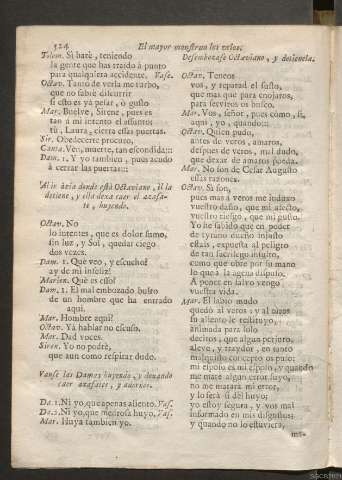 524
El mayor monstruo los zelos.
Tolom. Si harè, teniendo
la gente que has traido à punto
para qualquiera accidente. Vase.
Octav. Tanto de verla me turbo,
que no sabrè discurrir
si esto es yà pesar, ò gusto
Mar. Buelve, Sirene, pues es
tan à mi intento el assunto:
tù, Laura, cierra essas puertas.
Sir. Obedecerte procuro.
Canta. Ven, muerte, tan escondida:::
Dam. 1. Y yo tambien, pues acudo
à cerrar las puertas:::
Al ir àzia donde està Octaviano, èl la
detiene, y ella dexa caer el azafa-
te, huyendo.
Octav. No
lo intentes, que es dolor sumo,
sin luz, y Sol, quedar ciego
dos vezes.
Dam. 1. Què veo, y escucho?
ay de mi infeliz!
Marien. Què es esso?
Dam. 1. El mal embozado bulto
de un hombre que ha entrado
aqui.
Mar. Hombre aqui?
Octav. Yà hablar no escuso.
Mar. Dad voces.
Siren. Yo no podrè,
que aun como respirar dudo.
Vanse las Damas huyendo, y dexando
caer azafates, y adornos.
Da. 1. Ni yo, que apenas aliento. Vas.
Da. 2. Ni yo, que medrosa huyo. Vas.
Mar. Huya tambien yo.
Desembozase Octaviano, y detienela.
Octav. Teneos
vos, y reparad el susto,
que mas que para enojaros,
para serviros os busco.
Mar. Vos, señor, pues còmo, si,
aqui, yo, quando:::
Octav. Quien pudo,
antes de veros, amaros,
despues de veros, mal dudo,
que dexar de amaros pueda.
Mar. No son de Cesar Augusto
essas razones.
Octav. Sì son,
pues mas à veros me induxo
vuestro daño, que mi afecto,
vuestro riesgo, que mi gusto.
Yo he sabido que en poder
de tyrano dueño injusto
estais, expuesta al peligro
de tan sacrilego insulto,
como que obre por su mano
lo que à la agena dispuso.
A poner en salvo vengo
vuestra vida.
Mar. El labio mudo
quedò al veros, y al oiros
su aliento le restituyo,
animada para solo
deciros, que algun perjuro,
aleve, y traydor, en tanto
malquisto concepto os puso:
mi esposo es mi esposo, y quando
me mate algun error suyo,
no me matarà mi error,
y lo serà si dèl huyo;
yo estoy segura, y vos mal
informado en mis disgustos:
y quando no lo estuviera,